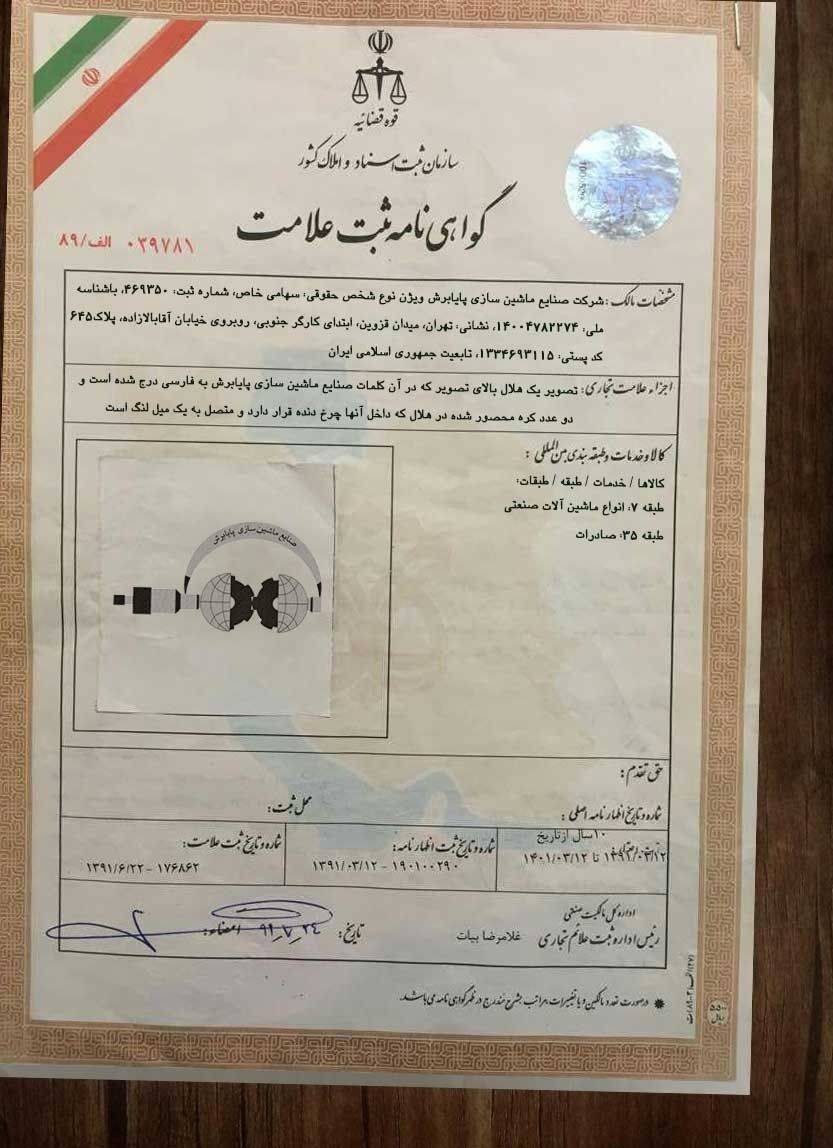 قوه قضائیه
سازمان ثبت اسناد و املاک کشور
گواهی نامه ثبت علامت
۰۳۹۷۸۱ الف/۸۹
مشخصات مالک: شرکت صنایع ماشین سازی پایابرش ویژن نوع شخص حقوقی: سهامی خاص، شماره ثبت: ۴۶۹۳۵۰، باشناسه
ملی: ۱۴۰۰۴۷۸۲۲۷۴، نشانی: تهران، میدان قزوین، ابتدای کارگر جنوبی، روبروی خیابان آقابالازاده، پلاک۶۴۵
کد پستی: ۱۳۳۴۶۹۳۱۱۵، تابعیت جمهوری اسلامی ایران
اجزاء علامت تجاری: تصویر یک هلال بالای تصویر که در آن کلمات صنایع ماشین سازی پایابرش به فارسی درج شده است و
دو عدد کره محصور شده در هلال که داخل آنها چرخ دنده قرار دارد و متصل به یک میل لنگ است
کالا و خدمات و طبقه بندی بین المللی :
کالاها / خدمات / طبقه / طبقات:
طبقه ۷: انواع ماشین آلات صنعتی
طبقه ۳۵: صادرات
صنایع ماشین سازی پایابرش
حق تقدم:
شماره و تاریخ اظهارنامه اصلی :
محل ثبت:
۱۰سال از تاریخ
۱۳۹۱/۰۳/۱۲ تا ۱۴۰۱/۰۳/۱۲
شماره و تاریخ ثبت اظهارنامه:
۱۹۰۱۰۰۲۹۰ - ۱۳۹۱/۰۳/۱۲
شماره و تاریخ ثبت علامت:
۱۷۶۸۶۲ - ۱۳۹۱/۶/۲۲
اداره کل مالکیت صنعتی
رئیس اداره ثبت علائم تجاری غلامرضا بیات
تاریخ: ۹۱_۷_۲۴ امضاء:
در صورت تعدد مالکین و یا تغییرات، مراتب بشرح مندرج در ظهر گواهی نامه می باشد.